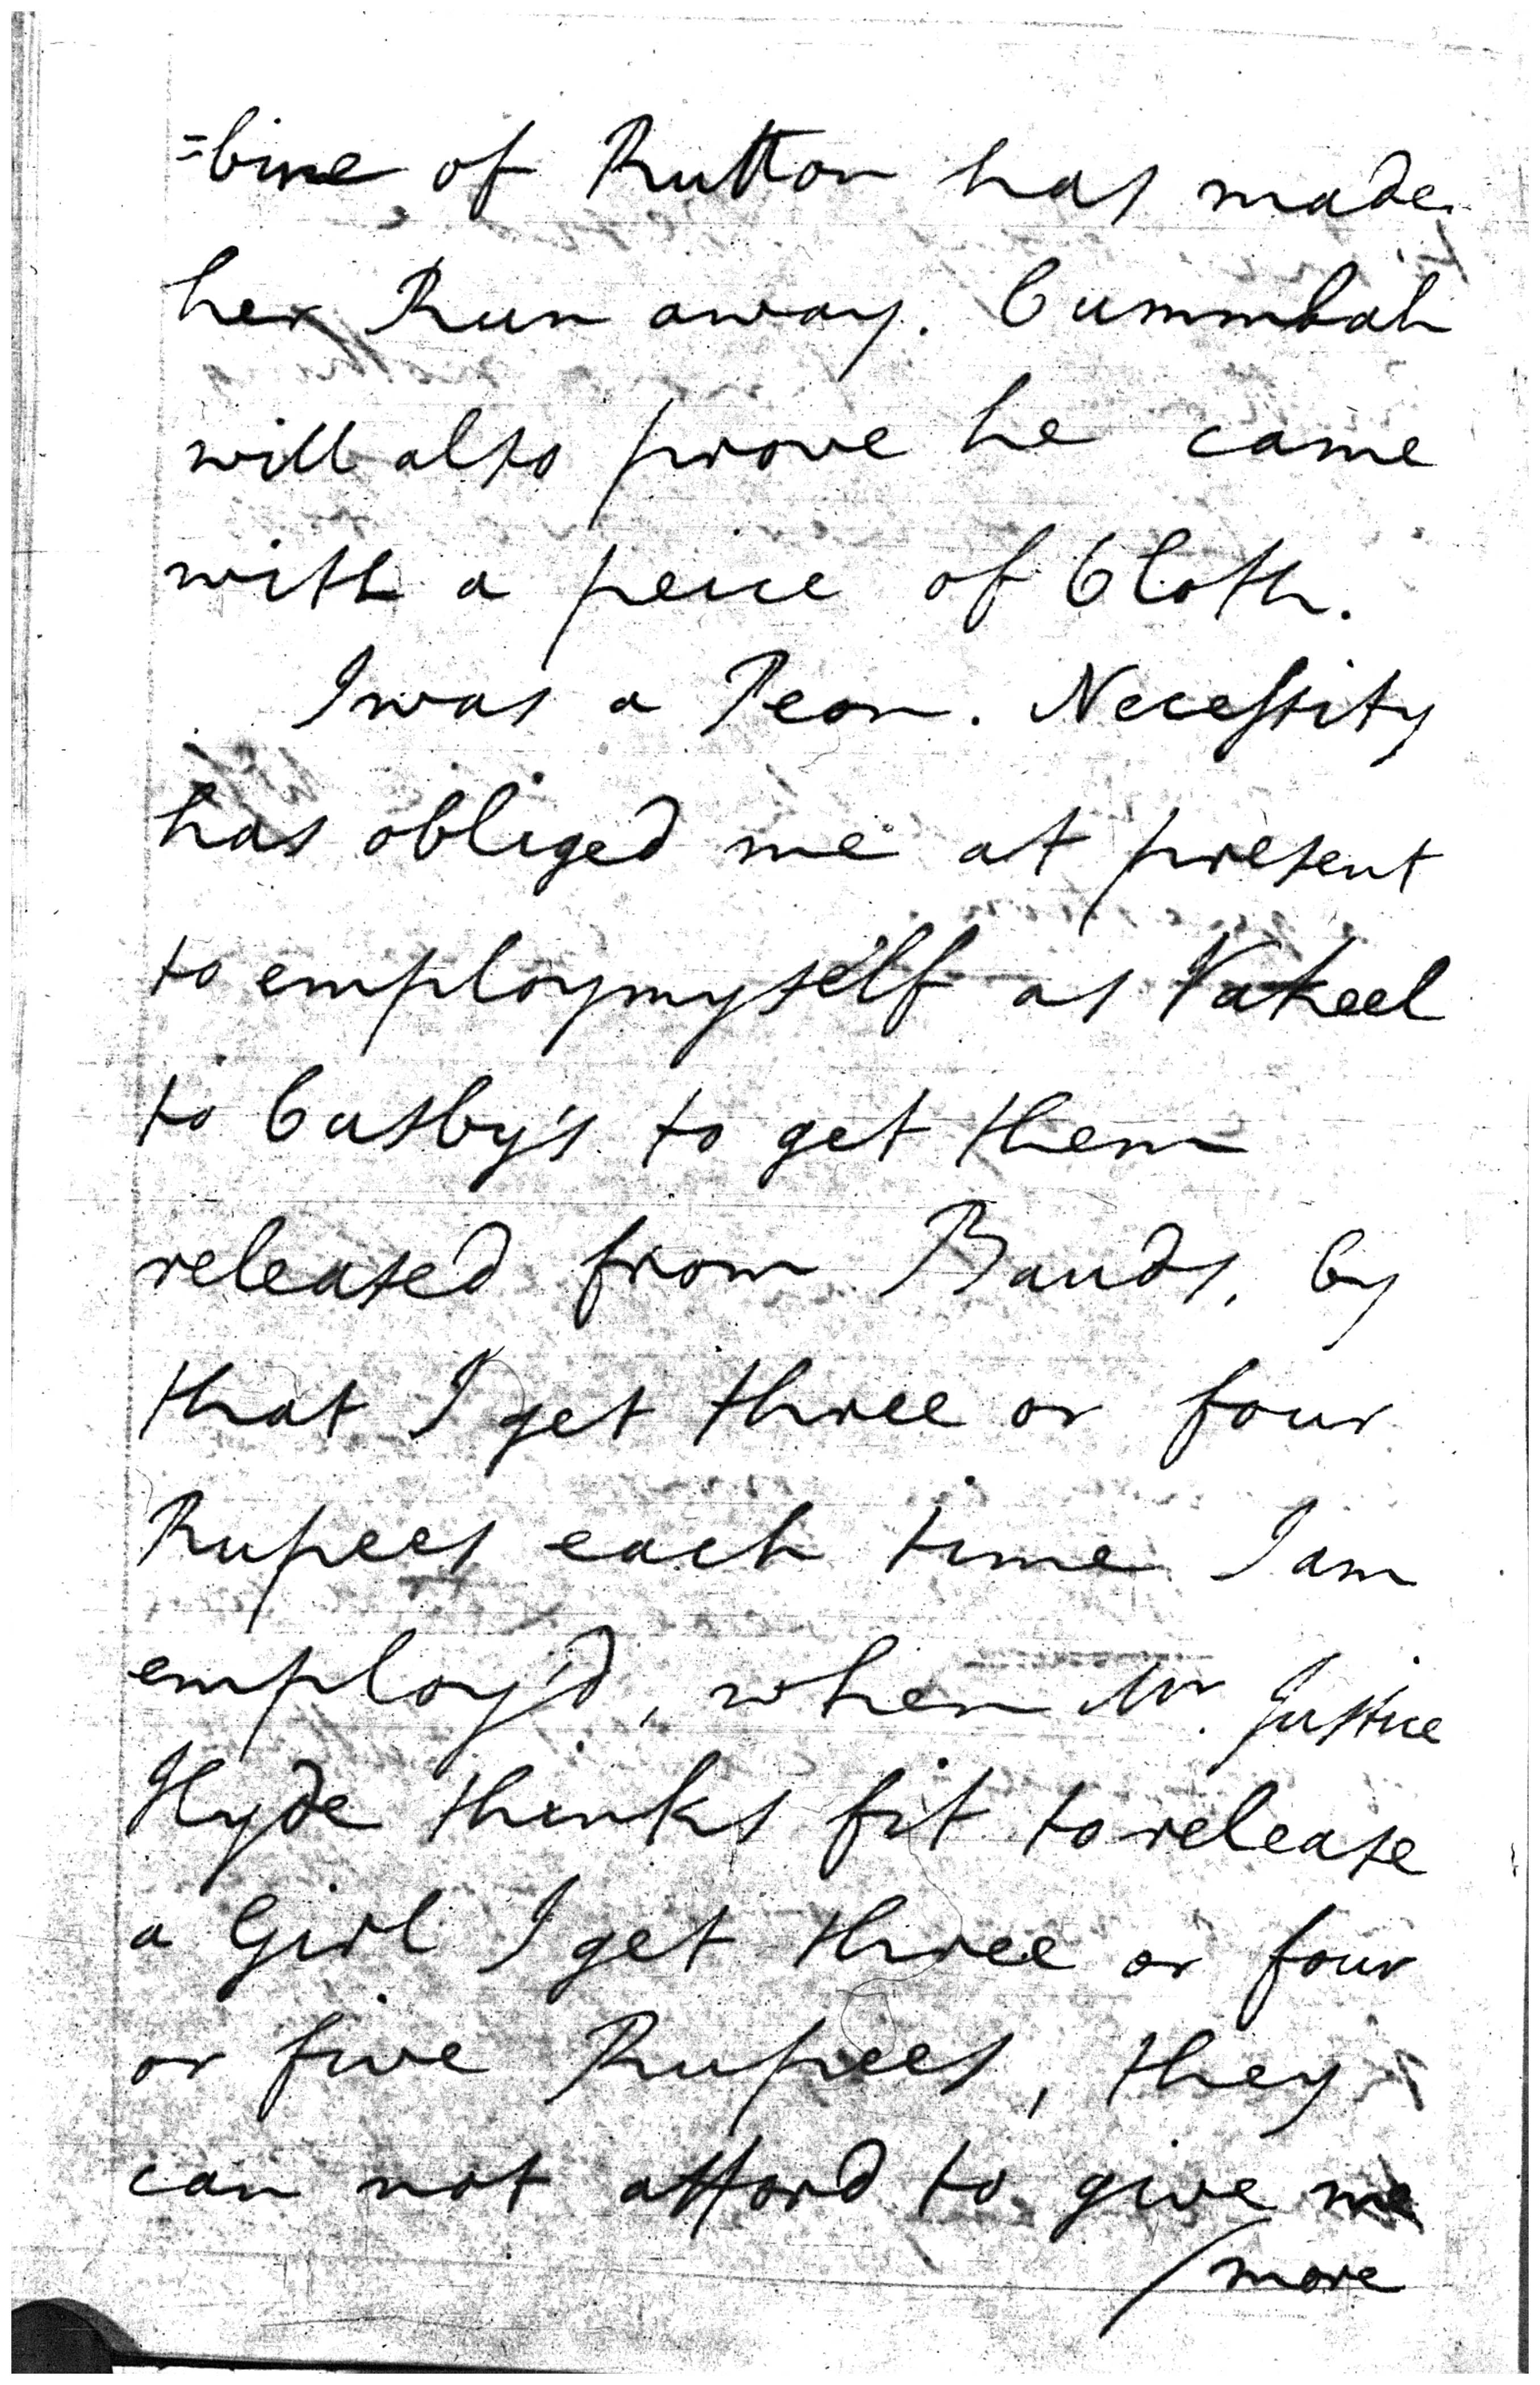 =bine of Rutton has made
her Run away. Cummbah
will also prove he came
with a peice of Cloth.
I was a Peon. Necessity
has obliged me at present
to employ myself as Vakeel
to Cusby's to get them
released from Bands, by
that I get three or four
Rupees each time I am
employ'd, when Mr. Justice
Hyde thinks fit to release
a Girl I get three or four
or five Rupees, they
can not afford to give me
/more